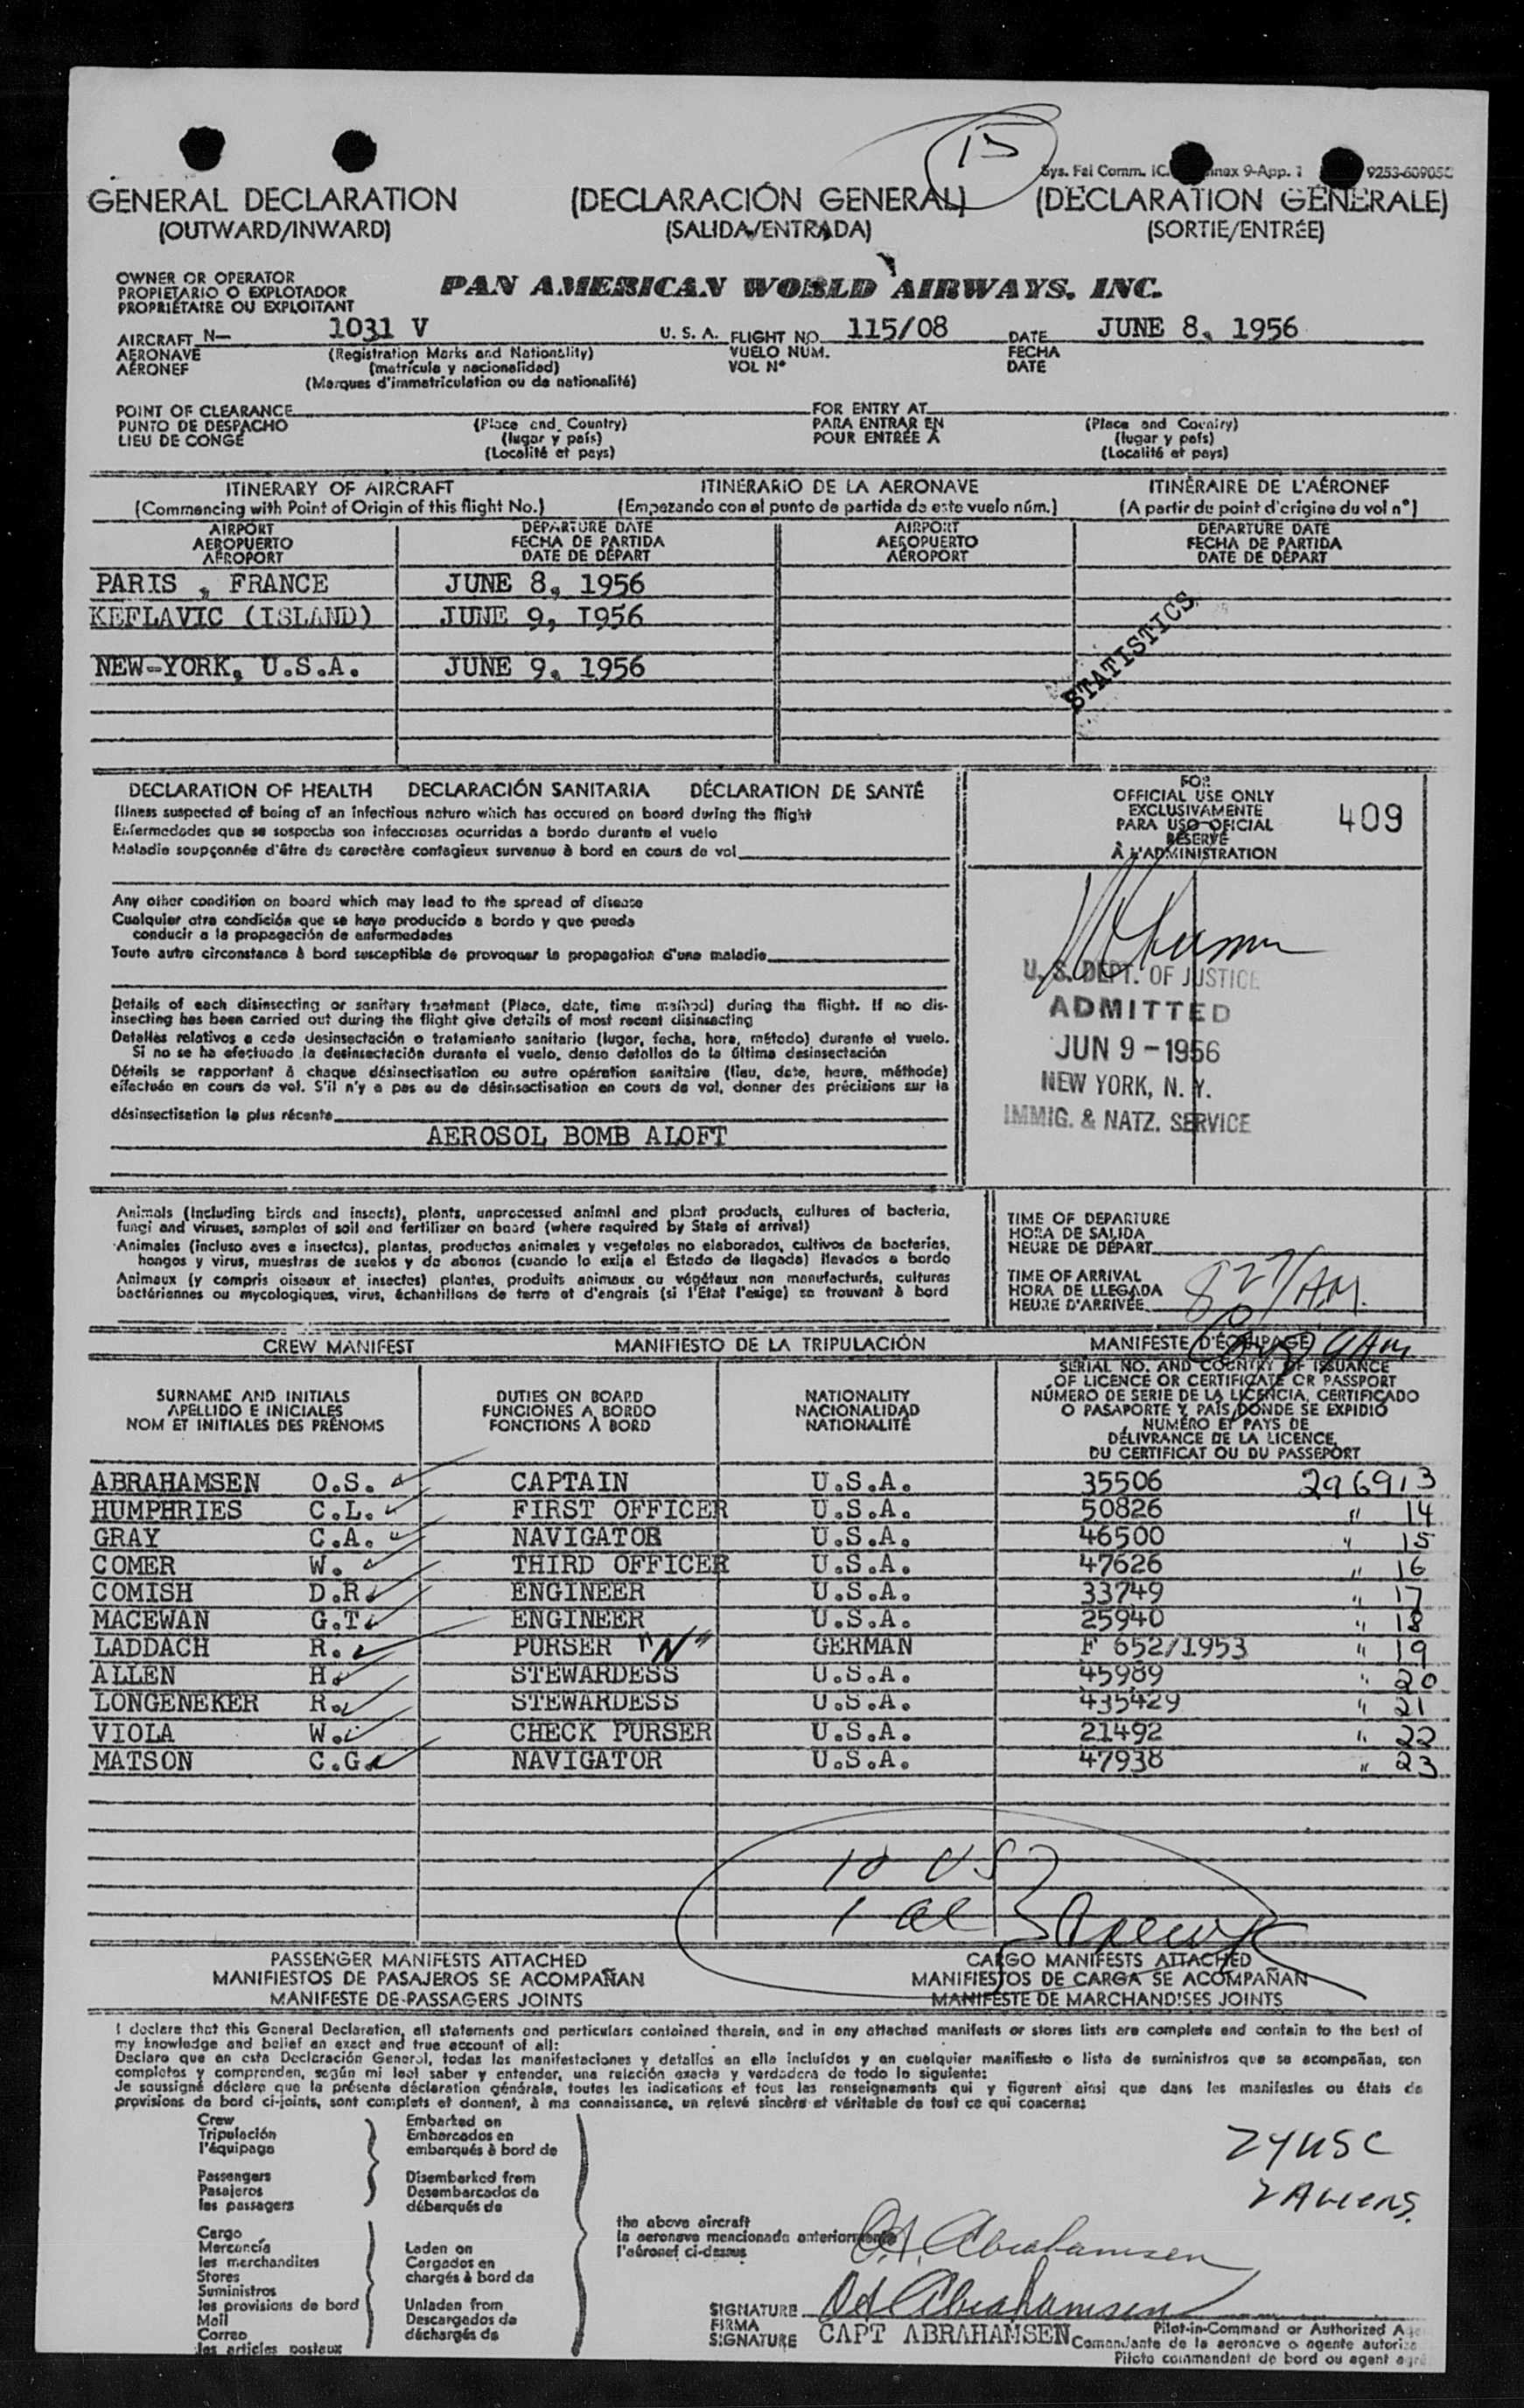 15
Sys. Fal Comm. IC. nnex 9-App. 1 9253-609050
GENERAL DECLARATION (DECLARACIÓN GENERAL) (DECLARATION GÉNÉRALE)
(OUTWARD/INWARD) (SALIDA/ENTRADA) (SORTIE/ENTRÉE)
OWNER OR OPERATOR
PROPIETARIO O EXPLOTADOR
PROPRIÉTAIRE OU EXPLOITANT
PAN AMERICAN WORLD AIRWAYS, INC.
AIRCRAFT N— 1031 V U. S. A. FLIGHT NO. 115/08 DATE JUNE 8, 1956
AERONAVE (Registration Marks and Nationality) VUELO NUM. FECHA
AÉRONEF (matrícula y nacionalidad) VOL Nº DATE
(Marques d'immatriculation ou de nationalité)
POINT OF CLEARANCE FOR ENTRY AT
PUNTO DE DESPACHO (Place and Country) PARA ENTRAR EN (Place and Country)
LIEU DE CONGÉ (lugar y país) POUR ENTRÉE A (lugar y país)
(Localité et pays) (Localité et pays)
ITINERARY OF AIRCRAFT ITINERARIO DE LA AERONAVE ITINÉRAIRE DE L'AÉRONEF
(Commencing with Point of Origin of this flight No.) (Empezando con el punto de partida de este vuelo núm.) (A partir du point d'origine du vol nº)
AIRPORT DEPARTURE DATE AIRPORT DEPARTURE DATE
AEROPUERTO FECHA DE PARTIDA AEROPUERTO FECHA DE PARTIDA
AÉROPORT DATE DE DÉPART AÉROPORT DATE DE DÉPART
PARIS , FRANCE JUNE 8, 1956
KEFLAVIC (ISLAND) JUNE 9, I956
NEW-YORK, U.S.A. JUNE 9, 1956
STATISTICS
DECLARATION OF HEALTH DECLARACIÓN SANITARIA DÉCLARATION DE SANTÉ
Illness suspected of being of an infectious nature which has occured on board during the flight
Enfermedades que se sospecha son infecciosas ocurridas a bordo durante el vuelo
Maladie soupçonnée d'être de caractère contagieux survenue à bord en cours de vol
Any other condition on board which may lead to the spread of disease
Cualquier otra condición que se haya producido a bordo y que pueda
conducir a la propagación de enfermedades
Toute autre circonstance à bord susceptible de provoquer la propagation d'une maladie
Details of each disinsecting or sanitary treatment (Place, date, time method) during the flight. If no dis-
insecting has been carried out during the flight give details of most recent disinsecting
Detalles relativos a cada desinsectación o tratamiento sanitario (lugar, fecha, hora, método) durante el vuelo.
Si no se ha efectuado la desinsectación durante el vuelo, dense detalles de la última desinsectación
Détails se rapportant à chaque désinsectisation ou autre opération sanitaire (lieu, date, heure, méthode)
effectuée en cours de vol. S'il n'y a pas eu de désinsectisation en cours de vol, donner des précisions sur la
désinsectisation la plus récente
AEROSOL BOMB ALOFT
FOR
OFFICIAL USE ONLY
EXCLUSIVAMENTE
PARA USO OFICIAL
RÉSERVÉ
À L'ADMINISTRATION
409
U. S. DEPT. OF JUSTICE
ADMITTED
JUN 9 - 1956
NEW YORK, N. Y.
IMMIG. & NATZ. SERVICE
Animals (including birds and insects), plants, unprocessed animal and plant products, cultures of bacteria,
fungi and viruses, samples of soil and fertilizer on board (where required by State of arrival)
Animales (incluso aves e insectos), plantas, productos animales y vegetales no elaborados, cultivos de bacterias,
hongos y virus, muestras de suelos y de abonos (cuando lo exija el Estado de llegada) llevados a bordo
Animaux (y compris oiseaux et insectes) plantes, produits animaux ou végétaux non manufacturés, cultures
bactériennes ou mycologiques, virus, échantillons de terre et d'engrais (si l'Etat l'exige) se trouvant à bord
TIME OF DEPARTURE
HORA DE SALIDA
HEURE DE DÉPART
TIME OF ARRIVAL
HORA DE LLEGADA
HEURE D'ARRIVÉE
827 AM.
CREW MANIFEST MANIFIESTO DE LA TRIPULACIÓN MANIFESTE D'ÉQUIPAGE
SURNAME AND INITIALS DUTIES ON BOARD NATIONALITY
APELLIDO E INICIALES FUNCIONES A BORDO NACIONALIDAD
NOM ET INITIALES DES PRÉNOMS FONCTIONS À BORD NATIONALITÉ
SERIAL NO. AND COUNTRY OF ISSUANCE
OF LICENCE OR CERTIFICATE OR PASSPORT
NÚMERO DE SERIE DE LA LICENCIA, CERTIFICADO
O PASAPORTE Y PAÍS DONDE SE EXPIDIÓ
NUMÉRO ET PAYS DE
DÉLIVRANCE DE LA LICENCE,
DU CERTIFICAT OU DU PASSEPORT
ABRAHAMSEN O.S. CAPTAIN U.S.A. 35506 296913
HUMPHRIES C.L. FIRST OFFICER U.S.A. 50826 " 14
GRAY C.A. NAVIGATOR U.S.A. 46500 " 15
COMER W. THIRD OFFICER U.S.A. 47626 " 16
COMISH D.R. ENGINEER U.S.A. 33749 " 17
MACEWAN G.T. ENGINEER U.S.A. 25940 " 18
LADDACH R. PURSER "N" GERMAN F 652/1953 " 19
ALLEN H. STEWARDESS U.S.A. 45989 " 20
LONGENEKER R. STEWARDESS U.S.A. 435429 " 21
VIOLA W. CHECK PURSER U.S.A. 21492 " 22
MATSON C.G. NAVIGATOR U.S.A. 47938 " 23
10 US
1 al
PASSENGER MANIFESTS ATTACHED CARGO MANIFESTS ATTACHED
MANIFIESTOS DE PASAJEROS SE ACOMPAÑAN MANIFIESTOS DE CARGA SE ACOMPAÑAN
MANIFESTE DE PASSAGERS JOINTS MANIFESTE DE MARCHANDISES JOINTS
I declare that this General Declaration, all statements and particulars contained therein, and in any attached manifests or stores lists are complete and contain to the best of
my knowledge and belief an exact and true account of all:
Declaro que en esta Declaración General, todas las manifestaciones y detalles en ella incluídos y en cualquier manifiesto o lista de suministros que se acompañan, son
completos y comprenden, según mi leal saber y entender, una relación exacta y verdadera de todo lo siguiente:
Je soussigné déclare que la présente déclaration générale, toutes les indications et tous les renseignements qui y figurent ainsi que dans les manifestes ou états de
provisions de bord ci-joints, sont complets et donnent, à ma connaissance, un relevé sincère et véritable de tout ce qui concerne:
Crew Embarked on
Tripulación Embarcados en
l'équipage embarqués à bord de
Passengers Disembarked from
Pasajeros Desembarcados de
les passagers débarqués de
Cargo
Mercancía Laden on
les merchandises Cargados en
Stores chargés à bord de
Suministros
les provisions de bord Unladen from
Mail Descargados de
Correo déchargés de
les articles postaux
24 USC
2 Aliens.
the above aircraft
la aeronave mencionada anteriormente
l'aéronef ci-dessus
O.S. Abrahamsen
SIGNATURE OS Abrahamsen
FIRMA
SIGNATURE CAPT ABRAHAMSEN
Pilot-in-Command or Authorized A
Comandante de la aeronave o agente autoriz
Pilote commandant de bord ou agent agré